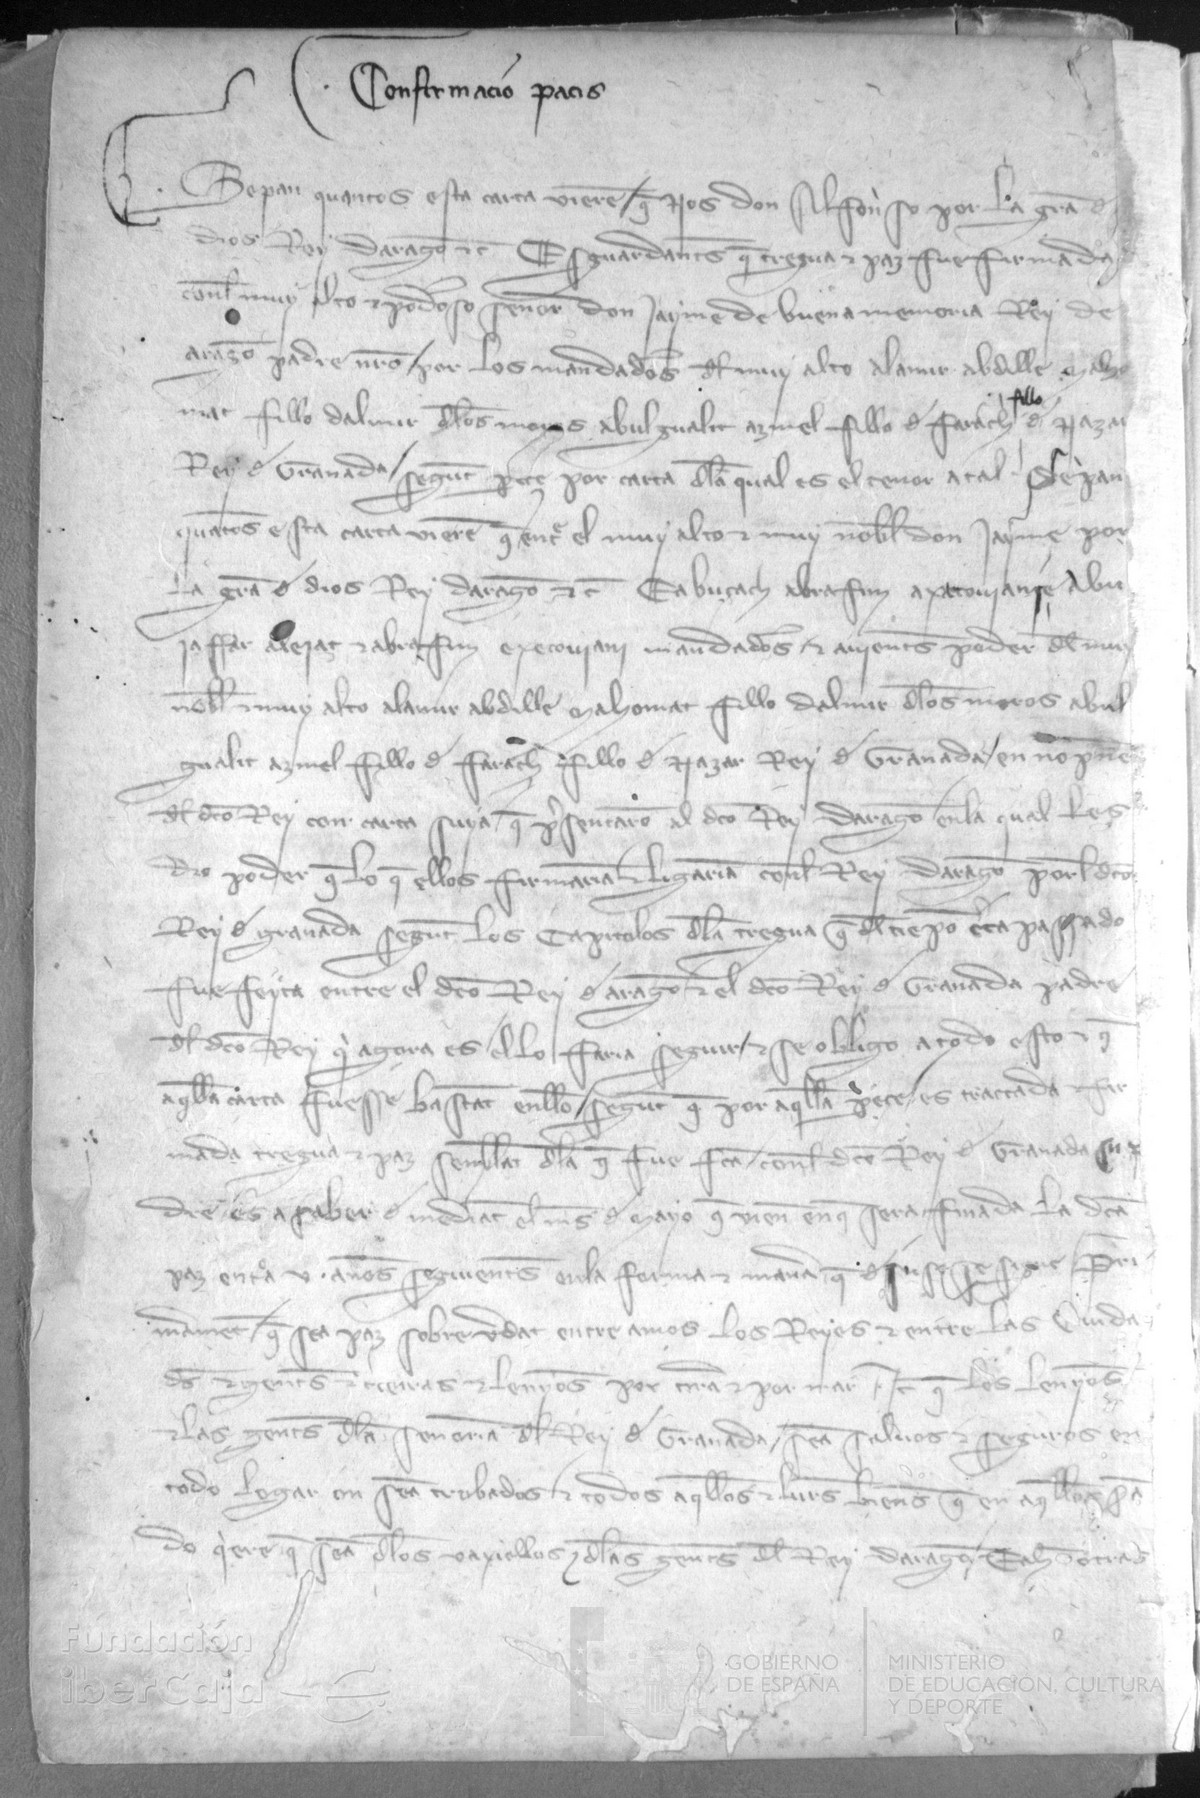 Confirmacio pacis
Sepan quantos esta carta viere q nos don Alfonso por la gra d
dios Rey darago etc Esguardants q tregua e paz fue firmada
conl muy alto e poderoso senor don Jayme de buena memoria Rey de
arago padre nro por los mandados dl muy alto alamir abdille maho
mat fillo dalmir dlos moros abulgualit azmel fillo d farach fillo d nazar
Rey d Granada segut pece por carta dla qual es el tenor atal Sepan
quatos esta carta viere q entre el muy alto e muy nobl don Jayme por
la gra d dios Rey darago etc E abuçach abrafim abu
jaffar e abrafim mandados e avients poder dl muy
nobl e muy alto alamir abdille mahomat fillo dalmir dlos moros abul
gualit azmel fillo d farach fillo d nazar Rey d Granada en no
dl dco Rey con carta suya q psentaro al dco Rey darago enla qual les
dio poder q lo q ellos firmaria e ligaria conl Rey darago porl dco
Rey d granada segut los Capitolos dla tregua q dl tiepo passado
fue feyta entre el dco Rey d arago e el dco Rey d Granada padre
dl dco Rey q agora es el lo faria seguir e se obligo a todo esto e q
aqlla carta fuesse bastat enello segut q por aqlla pece es tractada e fir
mada tregua e paz semblat dla q fue fca conl dco Rey d Granada su pa
dre es a saber d mediat el mes d mayo q vien enq sera finada la dca
paz entro a v anos seguients enla forma e mana q d juso se sigue Pri
meramet q sea paz sobre vdat entre amos los Reyes e entre las Ciuda
ds e gents e tierras e lenyos por tra e por mar etc q los lenyos
e las gents dla senoria dl Rey d Granada sea saluos e seguros en
todo logar on sea trobados e todos aqllos e lurs biens q en aqllos
do qere q sea dlos vaxiellos e dlas gents dl Rey darago
Fundación
iberCaja
GOBIERNO
DE ESPAÑA
MINISTERIO
DE EDUCACIÓN, CULTURA
Y DEPORTE